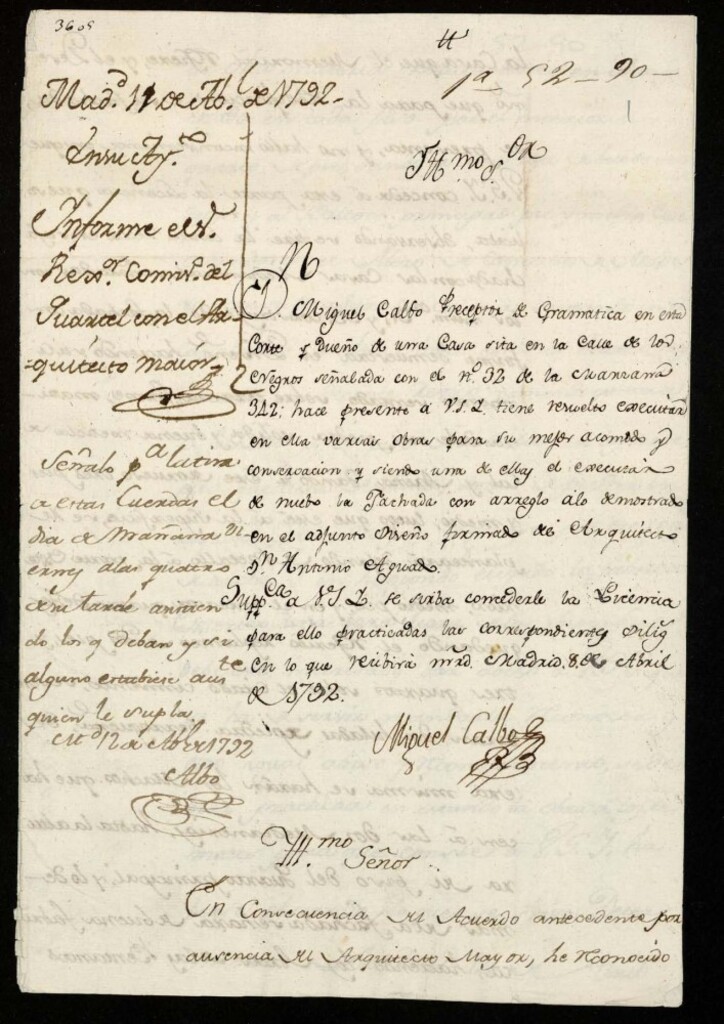 3605
tt
1ª 52-90-
Mad.ᵈ 11 de Ab.ˡ de 1792-
En su Ay.ᵗᵒ
Informe el S.ʳ
Rex.ᵒʳ Comis.º del
Quartel con el Ar-
quitecto maior,
Yll.mo S.or
Dn
Miguel Calbo Preceptor de Gramatica en esta
Corte y Dueño de una Casa sita en la Calle de los
Negros señalada con el nº. 32 de la Manzana
342; hace presente a V.S.I. tiene resuelto executar
en ella varias obras para su mejor acomodo y
conservacion y siendo una de ellas el executar
de nuebo la Fachada con arreglo alo demostrado
en el adjunto Diseño formado del Arquitecto
Dn Antonio Aguado.
Suppca a V.S.I. se sirba concederle la Licencia
para ello practicadas las correspondientes Dilig
en lo que recibirá mrd. Madrid. 8. de Abril
de 1792.
Miguel Calbo
Señalo pª la tira
a estas Cuerdas el
dia de mañana Vi-
ernes alas quatro
de su tarde
los q deban y si
alguno estubiese aus te
quien le supla.
Md 12 de Abl de 1792
Albo
Yll.mo Señor
En Consecuencia del Acuerdo antecedente por
ausencia del Arquitecto Mayor, he reconocido